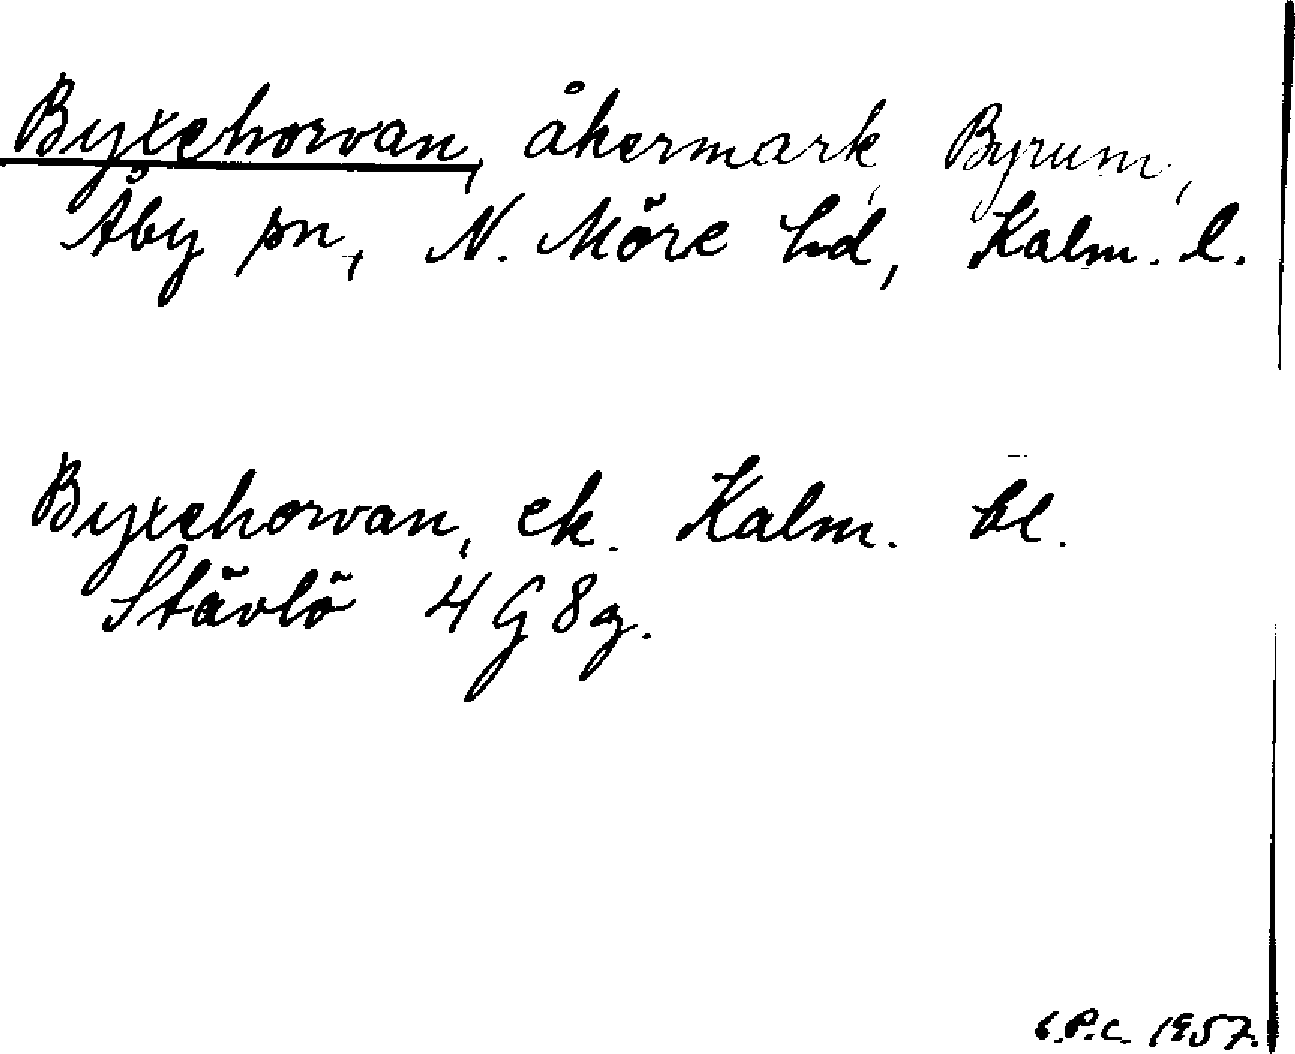 Byxehorvan, åkermark, Byrum,
Åby sn, N. Möre hd, Kalm. l.
Byxehorvan, ek. Kalm. bl.
Stävlö 4 G 8 g.
G.P.C. 1957.